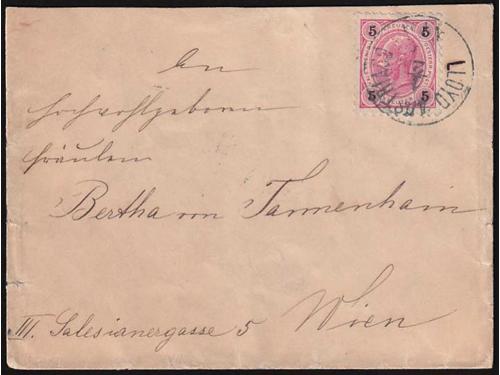 5 5
5 5
LLOYD AUSTRIACO
An
Hochwohlgeboren
Fräulein
Bertha von Tannenhain
III. Salesianergasse 5 Wien